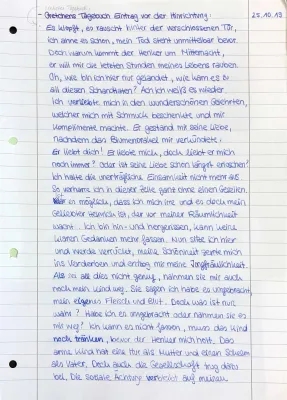 25.10.19
- Gretchens Tagebuch Eintrag vor der Hinrichtung:
Es klopft, es rauscht hinter der verschlossenen Tür,
ich ahne es schon, mein Tod steht unmittelbar bevor.
Doch warum kommt der Henker um Mitternacht,
er will mir die letzten Stunden meines Lebens rauben.
Oh, wie bin ich hier nur gelandet, wie kam es zu
all diesen Schandtaten? Ach ich weiß es wieder
Ich verliebte mich in den wunderschönen Gelehrten,
welcher mich mit Schmuck beschenkte und mir
Komplimente machte. Er gestand mir seine Liebe,
nachdem das Blumenorakel mir verkündete:
Er liebt dich! Er liebte mich, doch liebt er mich
noch immer? Oder ist seine Liebe schon längst erloschen?
Ich halte die unerträgliche Einsamkeit nicht mehr aus.
So verharre ich in dieser Zelle ganz ohne einen Gesellen.
ist es möglich, dass ich mich irre und es doch mein
Geliebter Heinrich ist, der vor meiner Räumlichkeit
wacht. Ich bin hin- und hergerissen, kann keine
klaren Gedanken mehr fassen. Nun sitze ich hier
und werde verrückt, meine Schönheit zerrte mich
ins Verderben und entzog mir meine Jungfräulichkeit.
Als sei all dies nicht genug, nahmen sie mir auch
noch mein Kind weg. Sie sagen ich habe es umgebracht,
mein eigenes Fleisch und Blut. Doch was ist nun
wahr? Habe ich es umgebracht oder nahmen sie es
mir weg? Ich kann es nicht fassen, muss das Kind
noch tränken, bevor der Henker mich holt. Das
arme Kind hat eine Hur als Mutter und einen Schelm
als Vater. Doch auch die Gesellschaft trug dazu
bei. Die soziale Ächtung verbleibt auf meinen